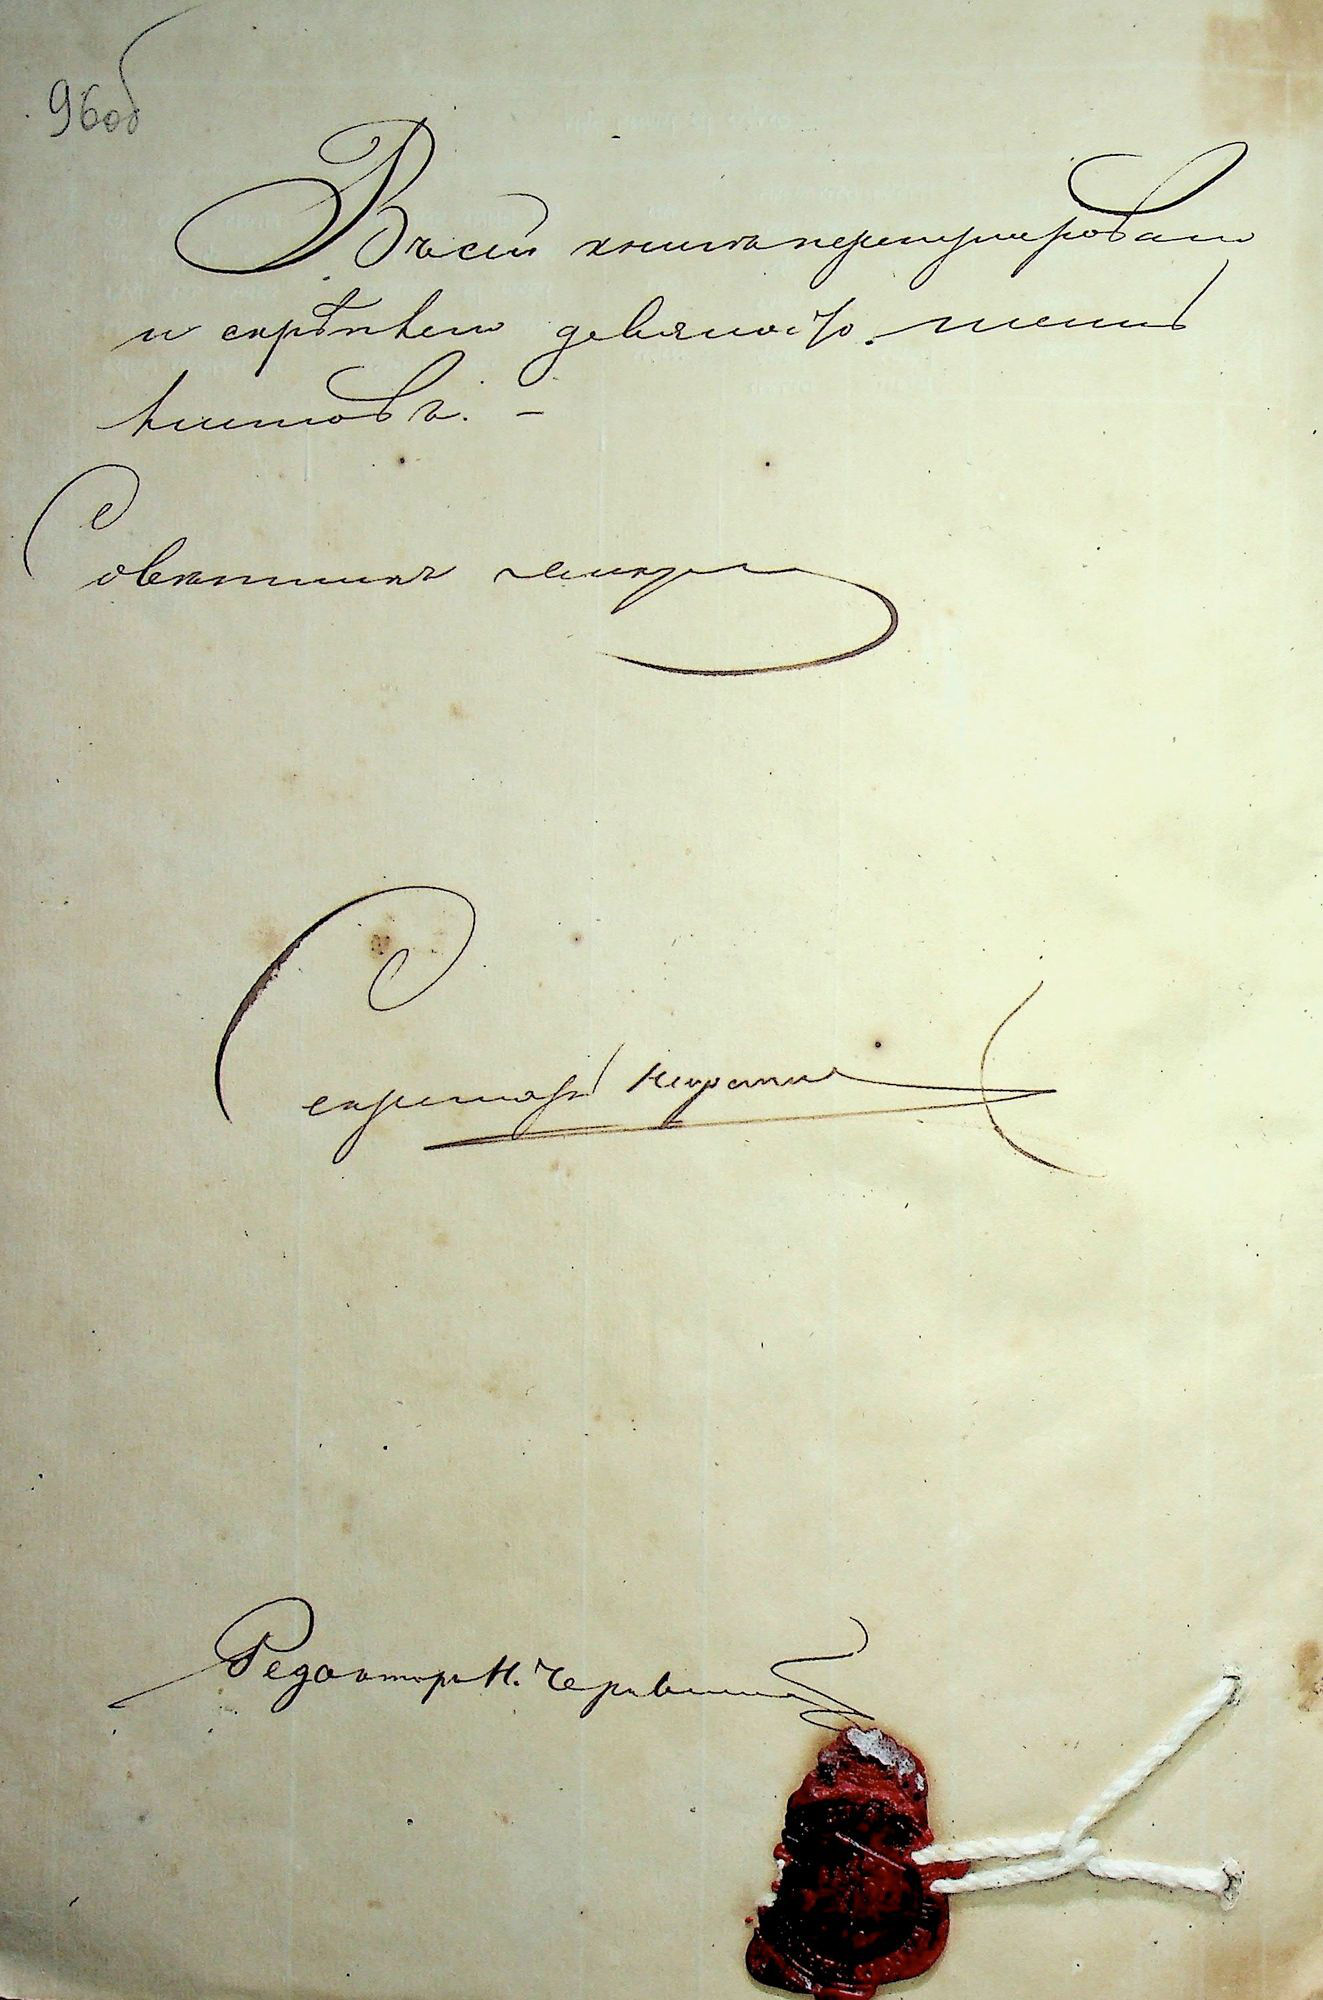 96 об
Въ сей книгѣ перенумеровано
и скрѣплено девяносто шесть
листовъ. –
Совѣтникъ
Секретарь
Редакторъ Н.